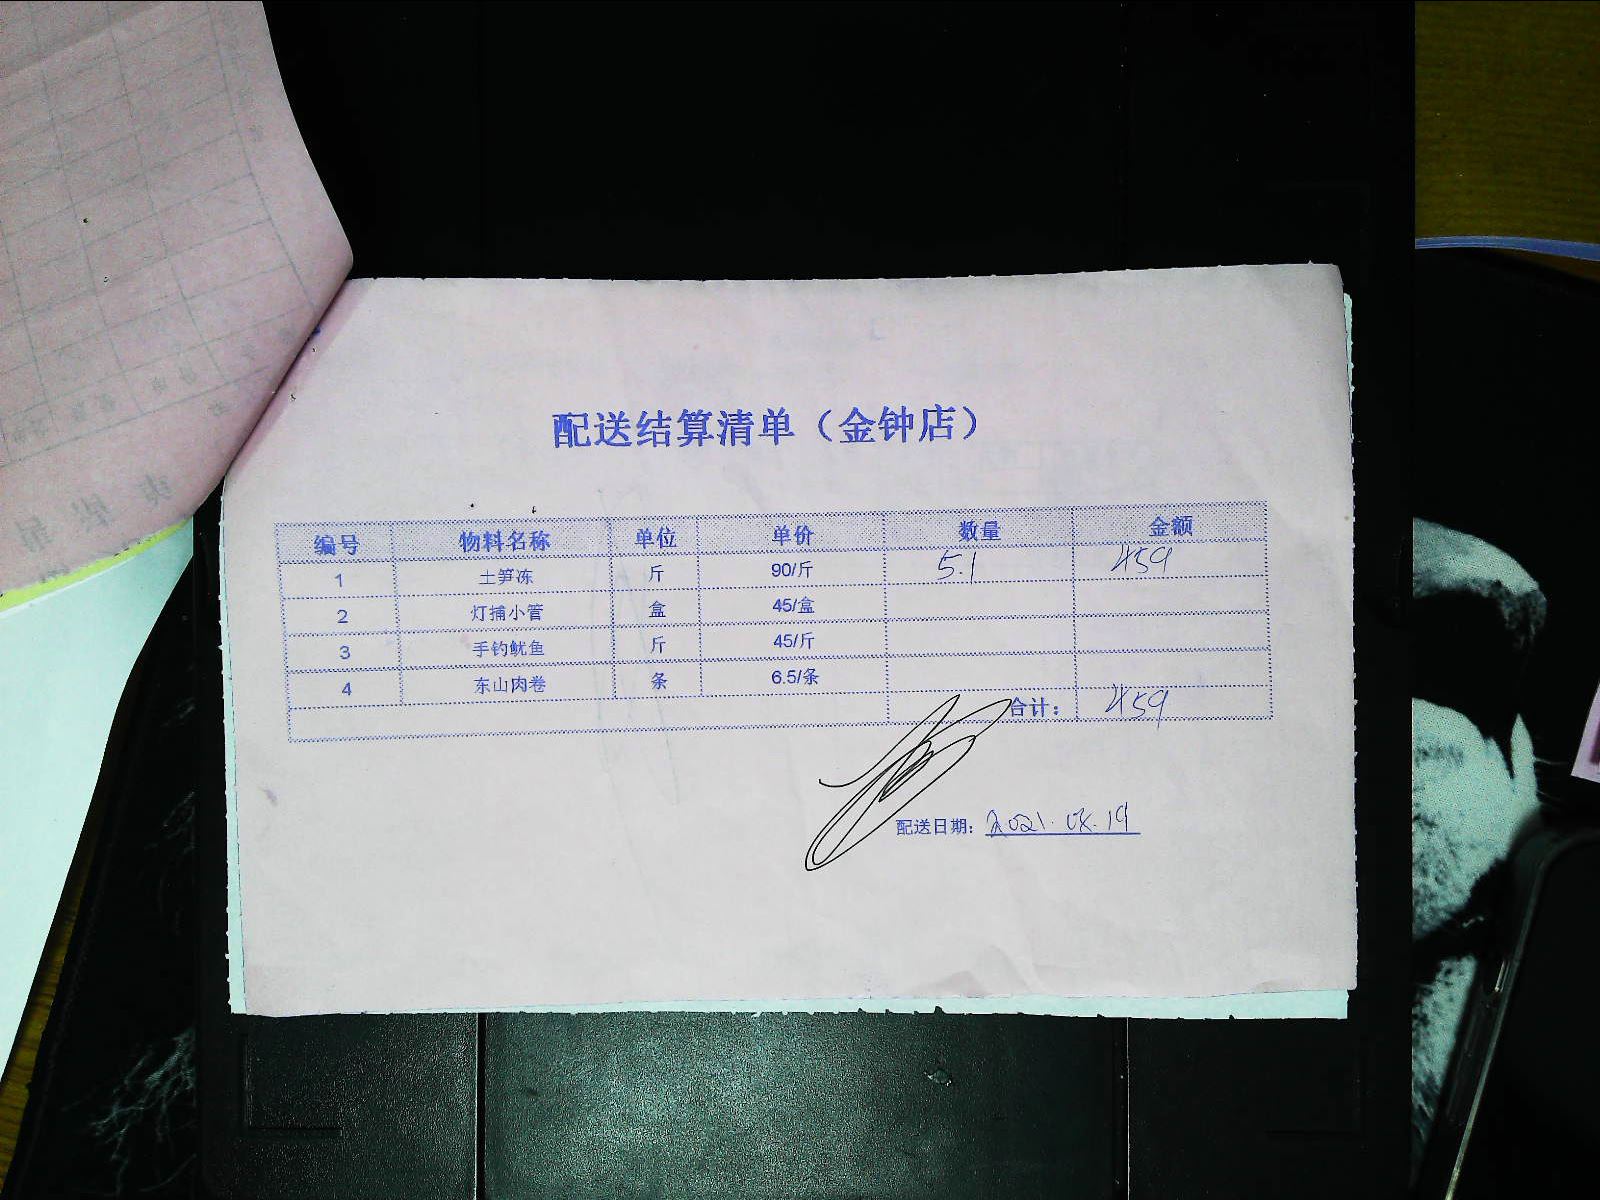 配送结算清单（金钟店）
编号 物料名称 单位 单价 数量 金额
1 土笋冻 斤 90/斤 5.1 459
2 灯捕小管 盒 45/盒
3 手钓鱿鱼 斤 45/斤
4 东山肉卷 条 6.5/条
合计： 459
配送日期：2021.08.19